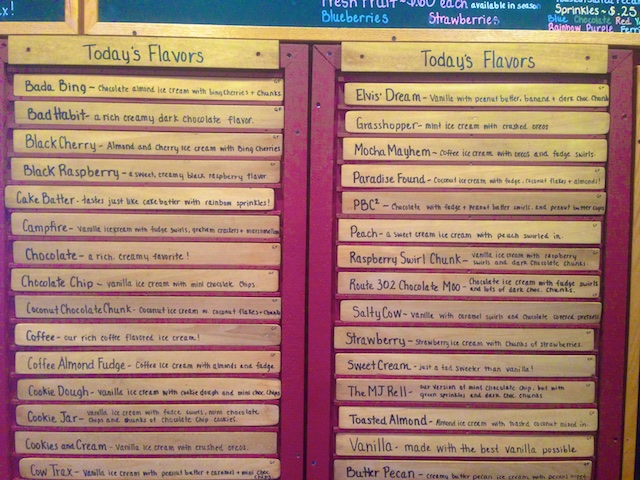 x!
Fresh Fruit ~ $.60 each available in season
Blueberries Strawberries
Sprinkles ~ $.25
Blue Chocolate Red
Rainbow Purple
Today's Flavors
Bada Bing - Chocolate almond ice cream with bing cherries + chunks
Bad Habit - a rich creamy dark chocolate flavor.
Black Cherry - Almond and cherry ice cream with Bing Cherries
Black Raspberry - a sweet, creamy black raspberry flavor
Cake Batter - tastes just like cake batter with rainbow sprinkles!
Campfire - Vanilla ice cream with fudge swirls, graham crackers + marshmallow
Chocolate - a rich, creamy favorite!
Chocolate Chip - vanilla ice cream with mini chocolate chips.
Coconut Chocolate Chunk - Coconut ice cream w. coconut flakes + chunks
Coffee - our rich coffee flavored ice cream!
Coffee Almond Fudge - Coffee ice cream with almonds and fudge
Cookie Dough - Vanilla ice cream with cookie dough and mini choc chips
Cookie Jar - vanilla ice cream with fudge swirls, mini chocolate
chips and chunks of chocolate chip cookies.
Cookies and Cream - Vanilla ice cream with crushed oreos.
Cow Trax - vanilla ice cream with peanut butter + caramel + mini choc
chips
Today's Flavors
Elvis' Dream - Vanilla with peanut butter, banana + dark choc chunk
Grasshopper - mint ice cream with crushed oreos
Mocha Mayhem - coffee ice cream with oreos and fudge swirls
Paradise Found - Coconut ice cream with fudge, coconut flakes + almonds!
PBC² - Chocolate with fudge + peanut butter swirls, and peanut butter cups
Peach - a sweet cream ice cream with peach swirled in.
Raspberry Swirl Chunk - vanilla ice cream with raspberry
swirls and dark chocolate chunks.
Route 302 Chocolate Moo - Chocolate ice cream with fudge swirls
and lots of dark choc. chunks.
Salty Cow - vanilla with caramel swirls and chocolate covered pretzels
Strawberry - Strawberry ice cream with chunks of strawberries
Sweet Cream - just a tad sweeter than vanilla!
The MJ Rell - our version of mint chocolate chip, but with
green sprinkles and dark choc chunks
Toasted Almond - Almond ice cream with toasted coconut mixed in.
Vanilla - made with the best vanilla possible
Butter Pecan - creamy butter pecan ice cream with pecan